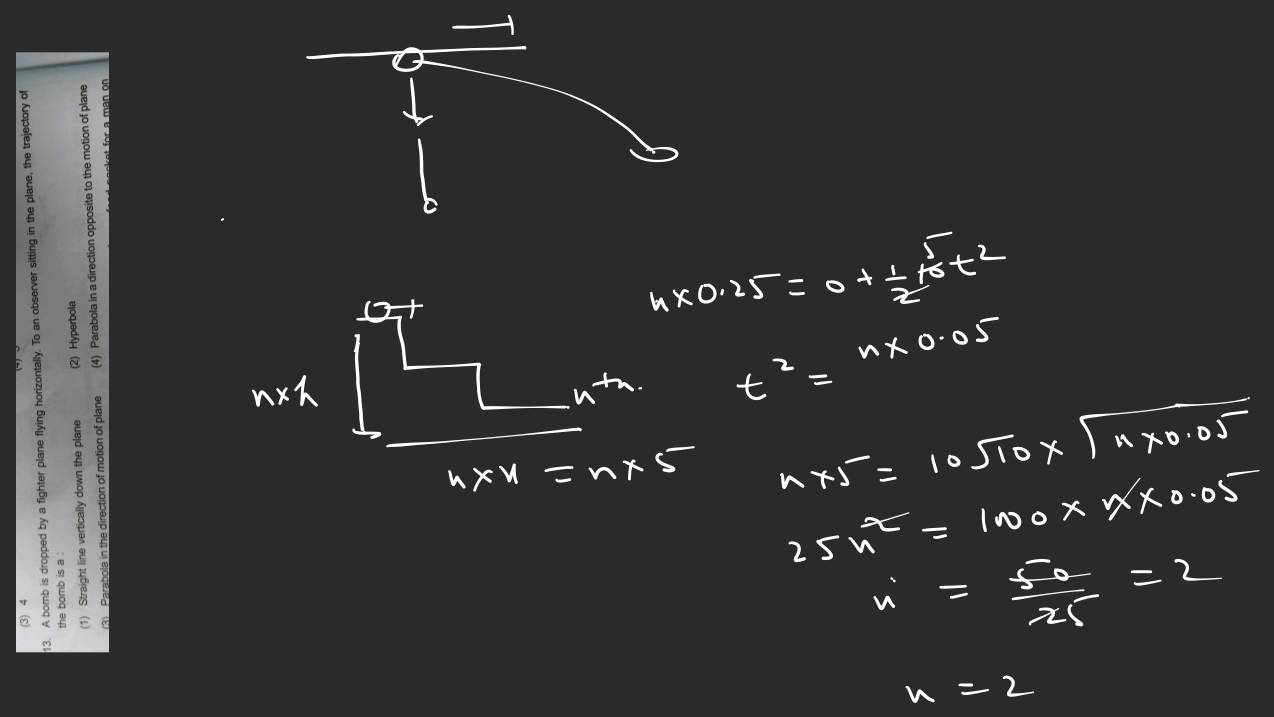 (3) 4
13. A bomb is dropped by a fighter plane flying horizontally. To an observer sitting in the plane, the trajectory of
the bomb is a :
(1) Straight line vertically down the plane (2) Hyperbola
(3) Parabola in the direction of motion of plane (4) Parabola in a direction opposite to the motion of plane
for a man on
n×0.25 = 0 + 1/2 10 5 t²
t² = n×0.05
n×h
nth.
n×x = n×5
n×5 = 10√10 × √n×0.05
25n² = 1000 × n×0.05
n = 50/25 = 2
n = 2